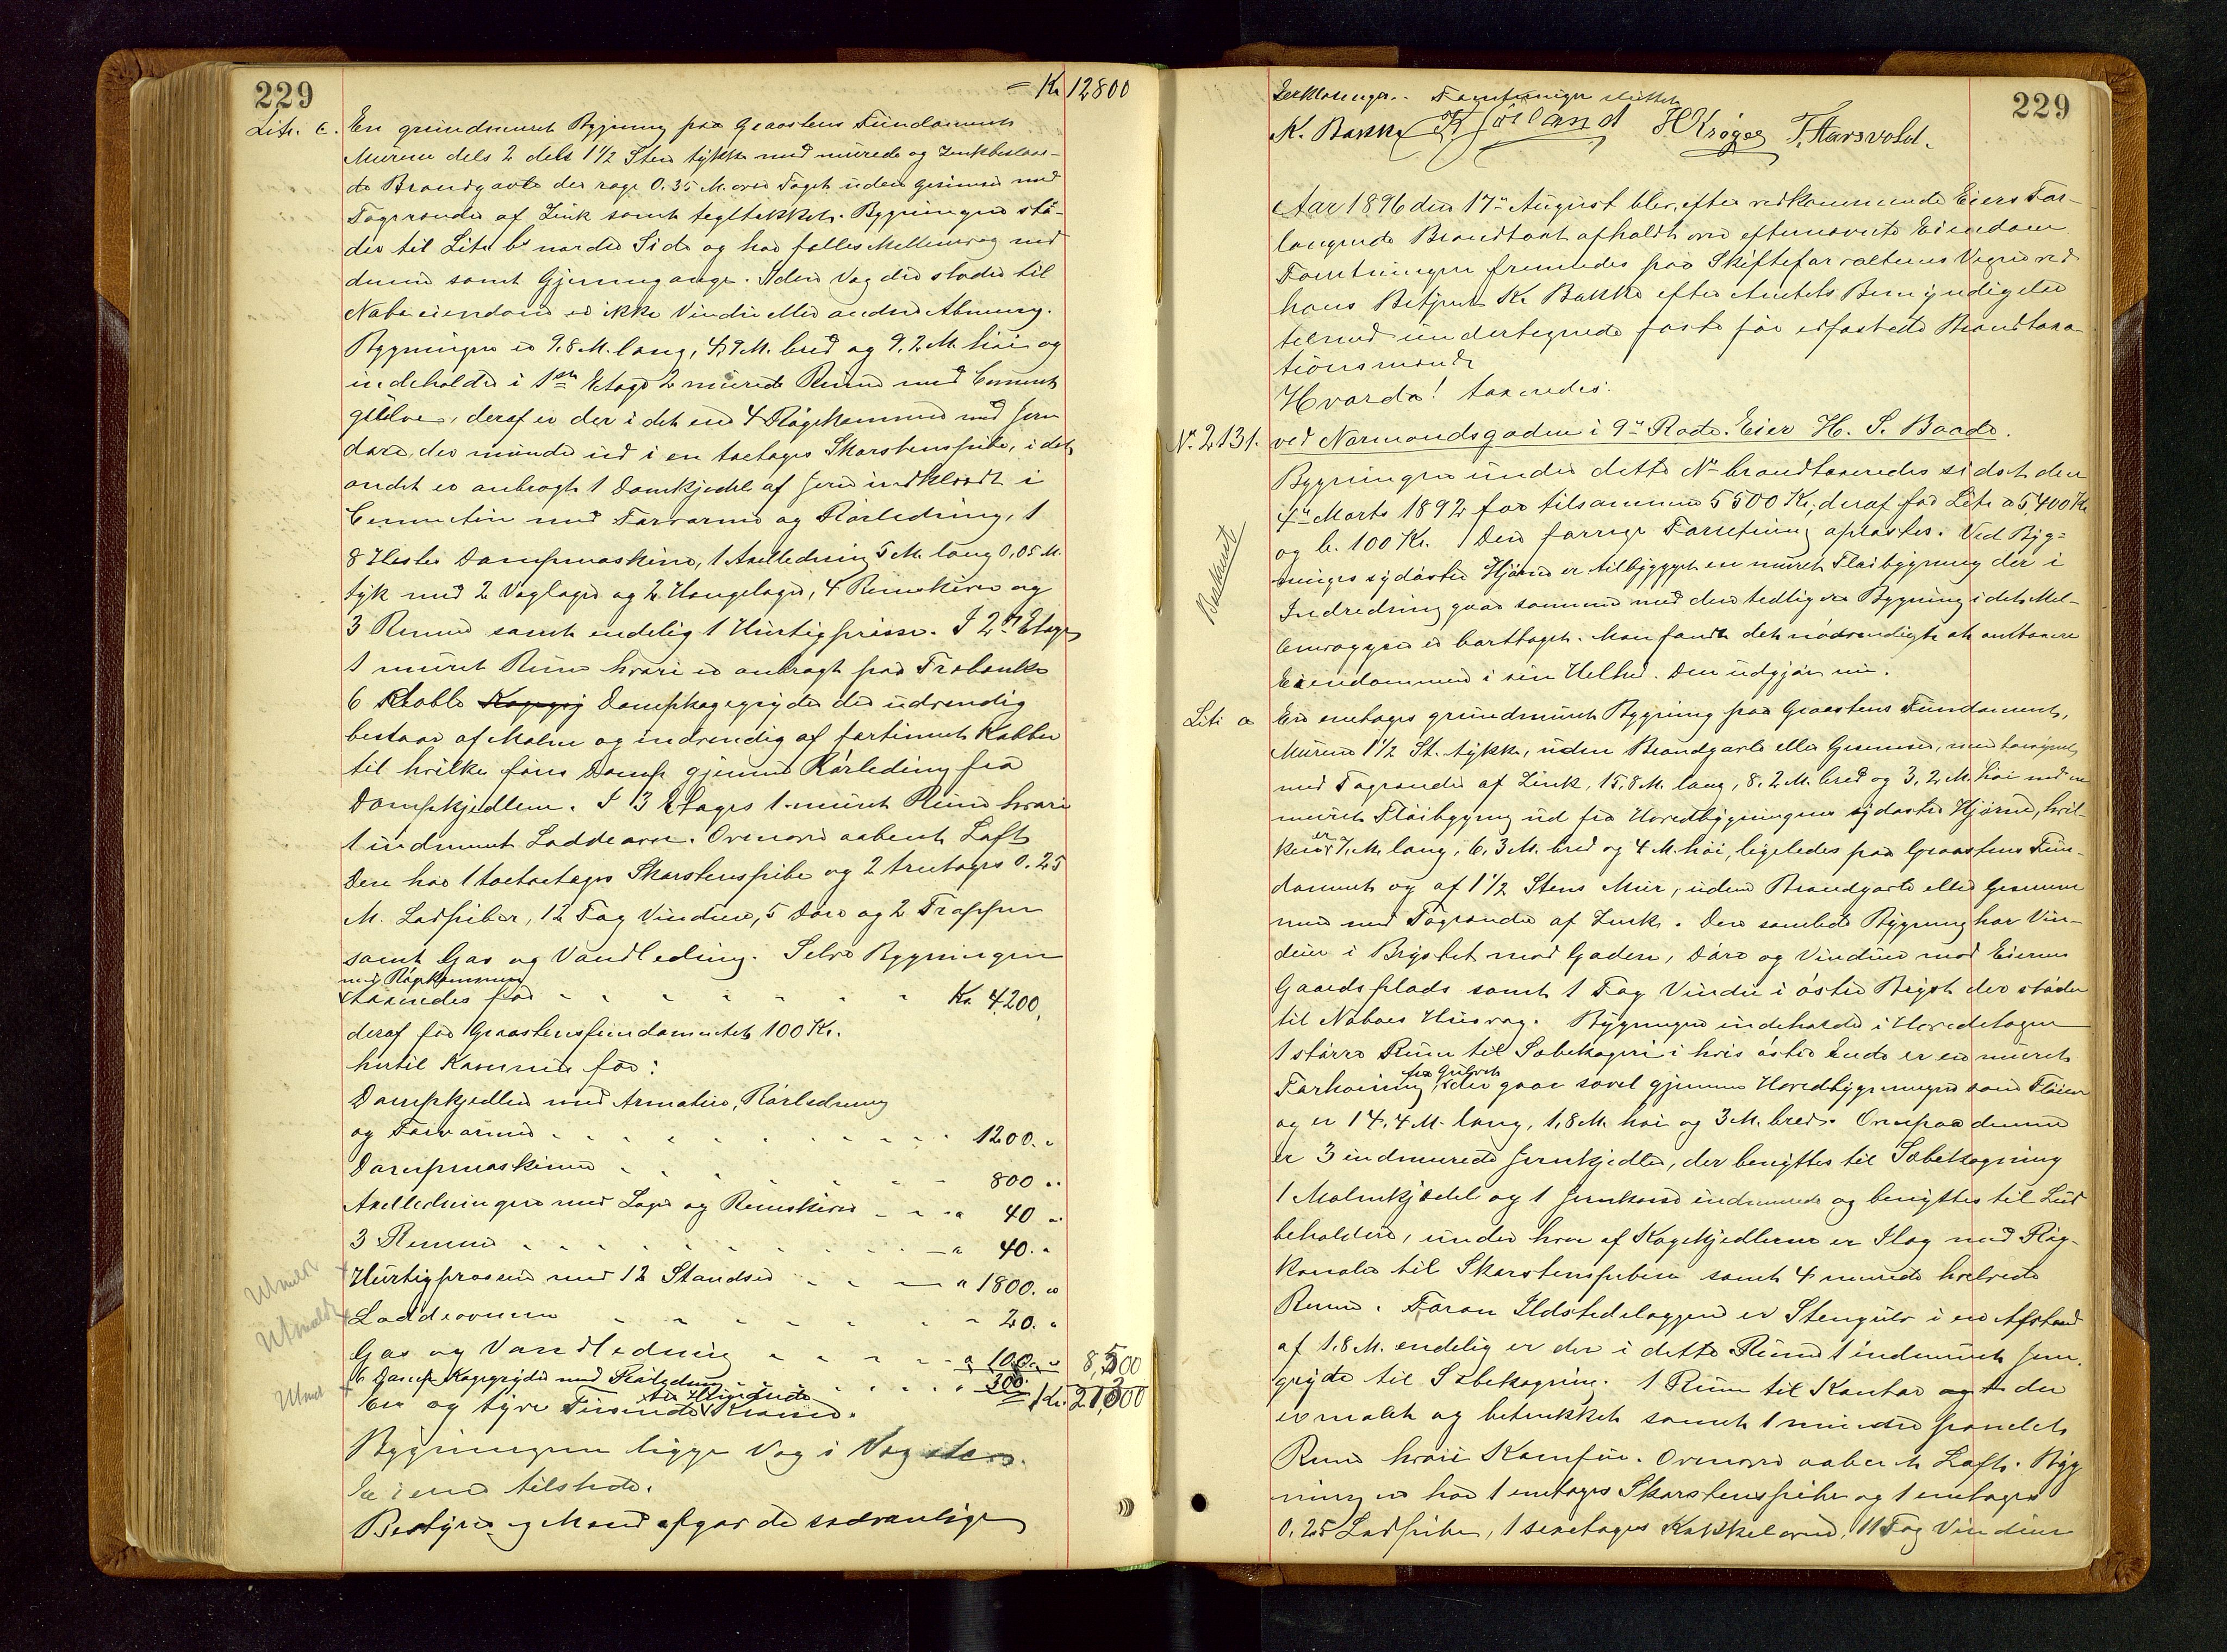 229
= Kr 12800
Litr. c. En grundmuret Bygning paa Graastens Fundament
Murene dels 2 dels 1½ Sten tykke med murede og Zinkbeslaae-
de Brandgavle der rage 0.35 M. over Taget uden Gesimser med
Tagrender af Zink samt tegltækket. Bygningen stö-
der til Litr b's nordre Side og har fælles Mellemvæg med
denne samt Gjennemgange. I den Væg der støder til
Naboeiendom er ikke Vindu eller anden Abning.
Bygningen er 9.8 M. lang, 4,7 M. bred og 9.2 M. høi og
indeholder i 1ste Etage 2 murede Rum med Cement
gulve, deraf er der i det ene 4 Røgekammer med Jern
døre, der munde ud i en toetages Skorstenspibe, i det
andet er anbragt 1 Dampkjedel af Jern indklædt i
Cement med Forvarmer og Rørledning, 1
8 Hestes Dampmaskine, 1 Axelledning 5 M. lang 0,05 M.
tyk med 2 Væglager og 2 Hængelager, 4 Remskiver og
3 Remme samt endelig 1 Hurtigpresse. I 2den Etage
1 muret Rum hvori er anbragt paa Træbænke
6 doble Dampkogegryder der udvendig
bestaar af Malm og indvendig af fortinnet Kobber
til hvilke føres Damp gjennem Rørledning fra
Dampkjedlen. I 3 Etages 1 muret Rum hvori
1 indmuret Loddeovn. Ovenover aabent Loft
Den har 1 toetages Skorstenspibe og 2 treetages 0.25
M. Lodpiber, 12 Fag Vinduer, 5 Døre og 2 Trapper
samt Gas og Vandledning. Selve Bygningen
med Røgekammer
taxeredes for - - - - - Kr. 4200,
deraf for Graastensfundamentet 100 Kr.
hertil Kommer for:
Dampkjedlen med Armatur, Rørledning
og Forvarmer - - - - - 1200. "
Dampmaskinen - - - - - 800 "
Axelledningen med Lager og Remskiver - - - " 40 "
3 Remme - - - - - " 40. "
Hurtigpressen med 12 Standser - - - " 1800. "
Loddeovnen - - - - - " 20. "
Gas og Vandledning - - - - " 100. " 8,500
6 Damp Kogegryder med Rørledning - - - " 300.
En og tyve Tusinde tre Hundrede Kroner. Kr. 21,300
Bygningerne ligge Væg i Væg
Eieren tilstede.
Bestyrer og Mænd afgav de sædvanlige
229
Erklæringer. Forretningen sluttet
K. Bakke K Jörland H Krøger T. Aarsvold.
Aar 1896 den 17de August blev efter vedkommende Eiers For-
langende Brandtaxt afholdt over efternævnte Eiendom
Forretningen fremmedes paa Skifteforvalterens Vegne ved
hans Betjent K. Bakke efter Amtets Bemyndigelse
tilmed undertegnede faste før edfæstede Brandtaxa-
tionsmænd
Hvorda! taxeredes:
Nr. 2131. ved Normandsgaden i 9de Rode. Eier H. S. Baade.
Bygningen under dette No brandtaxeredes sidst den
4de Marts 1892 for tilsammen 5500 Kr; deraf for Litr a 5,400 Kr
og b. 100 Kr. Den forrige Forretning oplæstes. Ved Byg-
ningens sydøstre Hjørne er tilbygget en muret Fløibygning der i
Indredning gaar sammen med den tidligere Bygning idet Mel-
lemvæggen er borttaget. Man fandt det nødvendigt at omtaxere
Eiendommen i sin Helhed. Den udgjør nu.
Beskrevet
Litr a En eenetages grundmuret Bygning paa Graastens Fundament,
Murene 1½ St. tykke, uden Brandgavle eller Gesimser, men forsynet
med Tagrender af Zink, 15,8 M. lang, 8.2 M. bred og 3,2 M. høi med en
muret Fløibygning ud fra Hovedbygningens sydøstre Hjørne, hvil-
ken er 7, M. lang, 6,3 M. bred og 4 M. høi, ligeledes paa Graastens Fun-
dament og af 1½ Stens Mur, uden Brandgavle eller Gesimser
men med Tagrender af Zink. Den samlede Bygning har Vin-
duer i Brystet mod Gaden, Døre og Vinduer mod Eierens
Gaardsplads samt 1 Fag Vindu i østre Bryst der støder
til Naboes Husvæg. Bygningen indeholder i Hovedetagen
1 større Rum til Sæbekogeri i hvis østre Ende er en muret
Forhøining fra Gulvet der gaar saavel gjennem Hovedbygningen som Fløien
og er 14,4 M. lang, 1,8 M. høi og 3 M. bred. Ovenpaa denne
er 3 indmurede Jernkjedler, der benyttes til Sæbekogning
1 Malmkjedel og 1 Jernkasse indmurede og benyttes til Lud
beholdere, under hver af Kogekjedlerne er Ilæg med Røg-
kanaler til Skorstenspiben samt 4 murede hvelvede
Rum. Foran Ildstedelæggene er Stengulv i en Afstand
af 1,8 M. endelig er der i dette Rum 1 indmuret Jern-
gryde til Sæbekogning. 1 Rum til Kontor der
er malet og betrukket samt 1 mindre panelet
Rum hvori Komfur. Ovenover aabent Loft. Byg
ningen har 1 eenetages Skorstenspibe og 1 eenetages
0.25 Lodpibe, 1 Kakkelovn, 11 Fag Vinduer